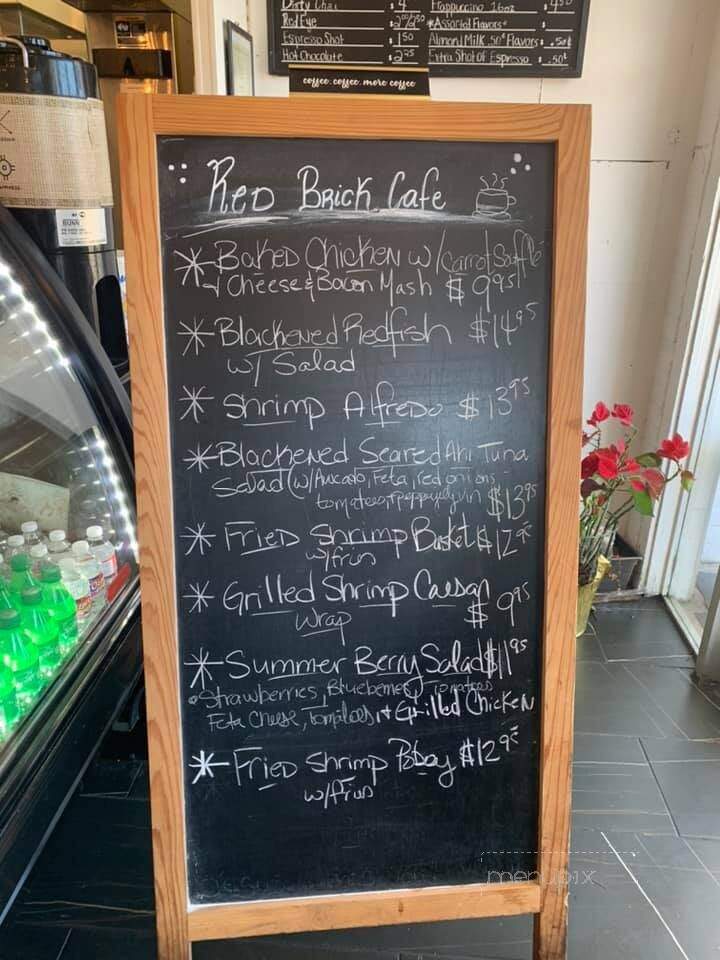 Dirty Chai $4
Red Eye
Espresso Shot $1.50
Hot Chocolate $2.75
Frappuccino 16oz $4.50
*Assorted Flavors*
Almond Milk .50¢ Flavors .50¢
Extra Shot of Espresso .50¢
coffee. coffee. more coffee
BUNN
Red Brick Cafe
* Baked Chicken w/ Carrot Soufflé
+ Cheese & Bacon Mash $9.95
* Blackened Redfish $14.95
w/ Salad
* Shrimp Alfredo $13.95
* Blackened Seared Ahi Tuna
Salad (w/ Avacado, Feta, red onions
tomatoes, $13.95
* Fried Shrimp Basket $12.95
w/ fries
* Grilled Shrimp Caesar
Wrap $9.95
* Summer Berry Salad $11.95
Strawberries, Blueberries, Tomatoes
Feta Cheese, tomatoes, + Grilled Chicken
* Fried Shrimp Poboy $12.95
w/ fries
menupix